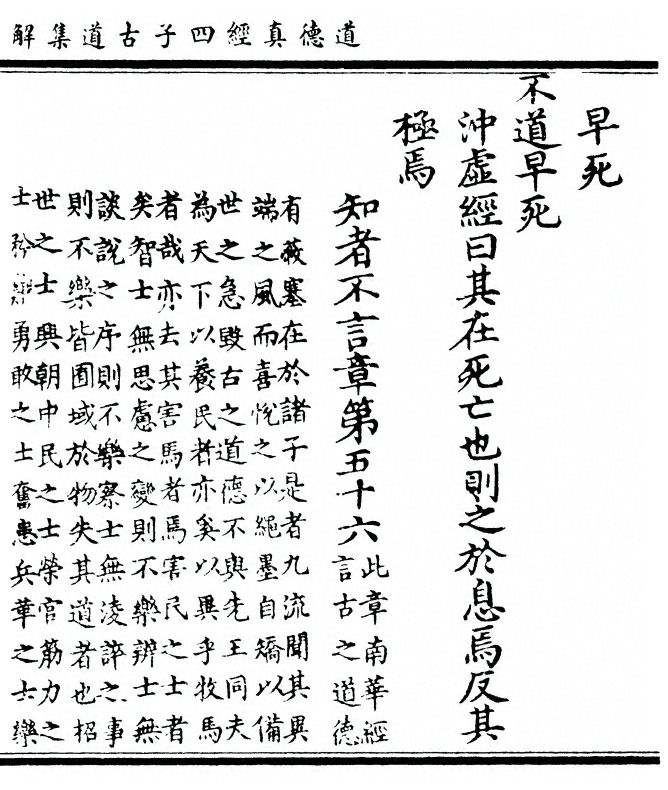 道德真經四子古道集解
早死
不道早死
沖虛經曰其在死亡也則之於息焉反其
極焉
知者不言章第五十六
此章南華經
言古之道德
有蔽塞在於諸子是者九流聞其異
端之風而喜悅之以絕墨自矯以備
世之急毀古之道德不與先王同夫
為天下以養民者亦奚以異乎牧馬
者哉亦去其害馬者焉害民之士者
矣智士無思慮之變則不樂辨士無
談說之序則不樂察士無淩誶之事
則不樂皆囿域於物失其道者也招
世之士興朝中民之士榮官筋力之
士矜難勇敢之士奮患兵華之士樂